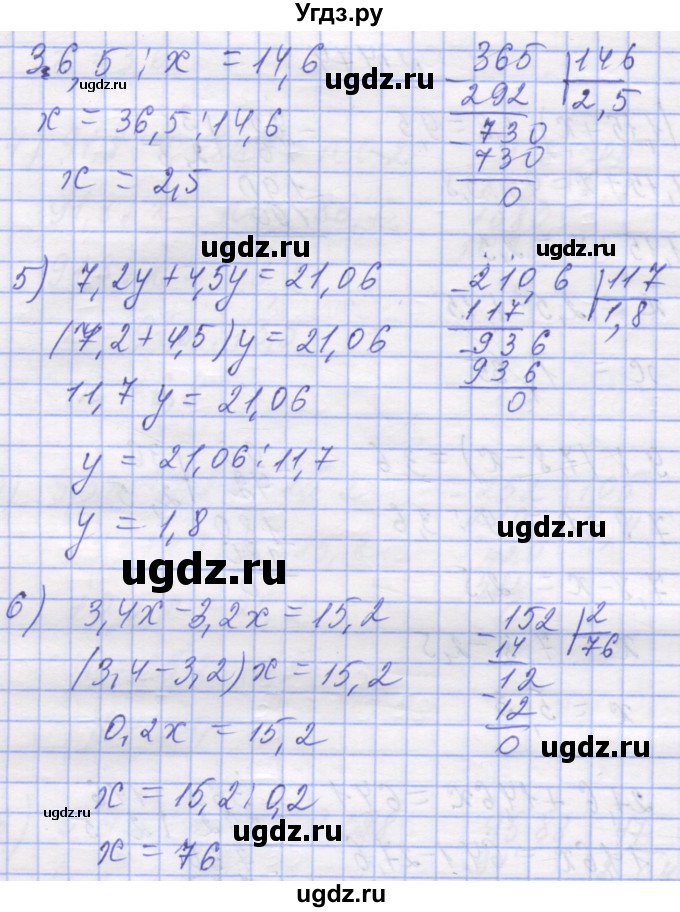 Угдз.ру
36,5 : x = 14,6
x = 36,5 : 14,6
x = 2,5
365 146
292 2,5
730
730
0
5) 7,2y + 4,5y = 21,06
(7,2 + 4,5)y = 21,06
11,7y = 21,06
y = 21,06 : 11,7
y = 1,8
210,6 117
117 1,8
936
936
0
6) 3,4x - 3,2x = 15,2
(3,4 - 3,2)x = 15,2
0,2x = 15,2
x = 15,2 : 0,2
x = 76
152 2
14 76
12
12
0
ugdz.ru
ugdz.ru
ugdz.ru
ugdz.ru
ugdz.ru
ugdz.ru
ugdz.ru
ugdz.ru
ugdz.ru
ugdz.ru
ugdz.ru
ugdz.ru